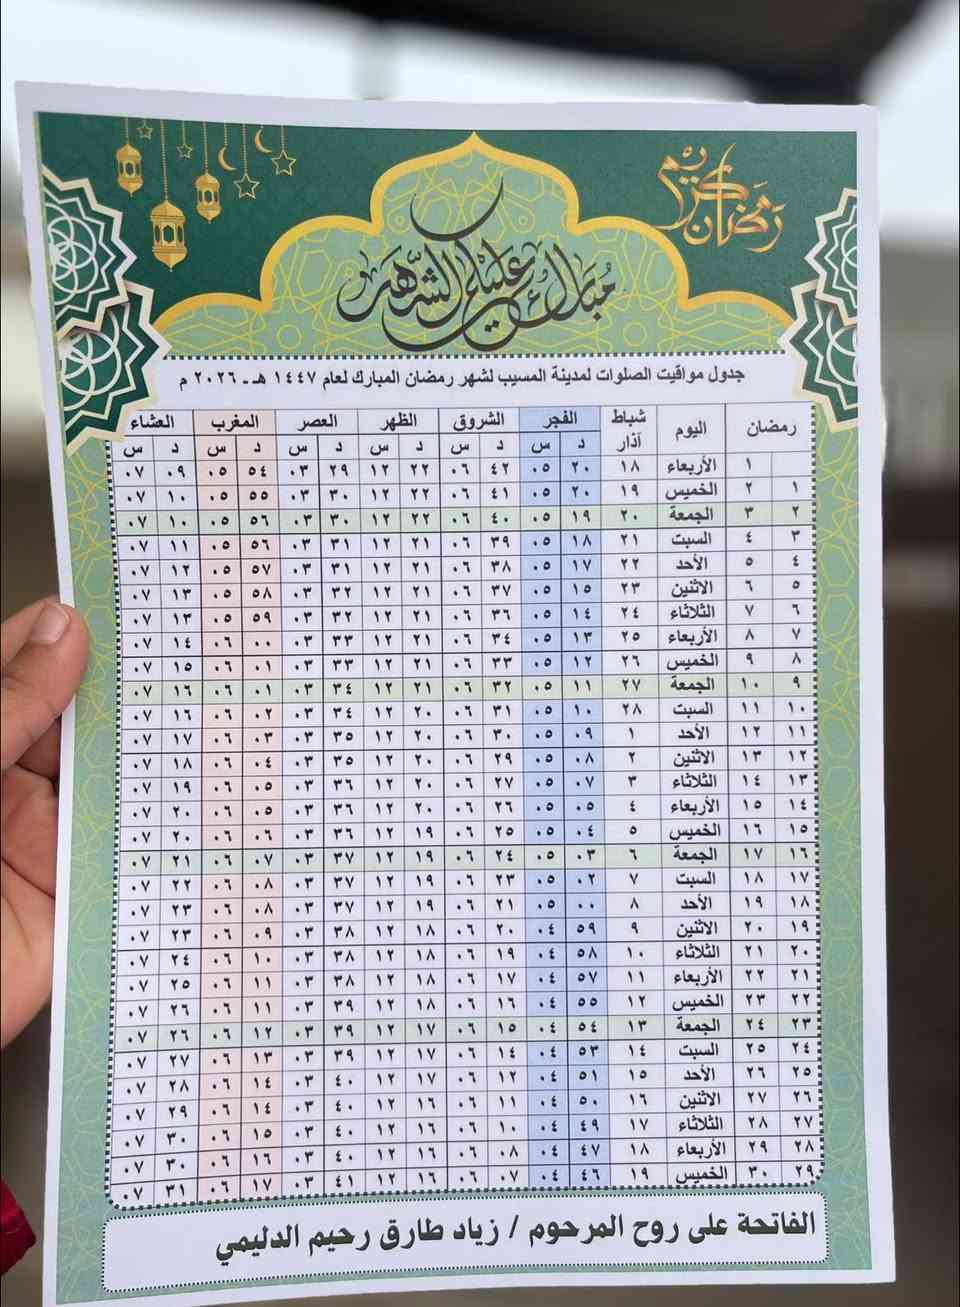 رمضان كريم
مبارك عليكم الشهر
جدول مواقيت الصلوات لمدينة المسيب لشهر رمضان المبارك لعام ١٤٤٧ هـ - ٢٠٢٦ م
رمضان اليوم شباط آذار الفجر الشروق الظهر العصر المغرب العشاء
د س د س د س د س د س د س
١ الأربعاء ١٨ ٢٠ ٠٥ ٤٢ ٠٦ ٢٢ ١٢ ٢٩ ٠٣ ٥٤ ٠٥ ٠٩ ٠٧
١ ٢ الخميس ١٩ ٢٠ ٠٥ ٤١ ٠٦ ٢٢ ١٢ ٣٠ ٠٣ ٥٥ ٠٥ ١٠ ٠٧
٢ ٣ الجمعة ٢٠ ١٩ ٠٥ ٤٠ ٠٦ ٢٢ ١٢ ٣٠ ٠٣ ٥٦ ٠٥ ١٠ ٠٧
٣ ٤ السبت ٢١ ١٨ ٠٥ ٣٩ ٠٦ ٢١ ١٢ ٣١ ٠٣ ٥٦ ٠٥ ١١ ٠٧
٤ ٥ الأحد ٢٢ ١٧ ٠٥ ٣٨ ٠٦ ٢١ ١٢ ٣١ ٠٣ ٥٧ ٠٥ ١٢ ٠٧
٥ ٦ الاثنين ٢٣ ١٥ ٠٥ ٣٧ ٠٦ ٢١ ١٢ ٣٢ ٠٣ ٥٨ ٠٥ ١٣ ٠٧
٦ ٧ الثلاثاء ٢٤ ١٤ ٠٥ ٣٦ ٠٦ ٢١ ١٢ ٣٢ ٠٣ ٥٩ ٠٥ ١٣ ٠٧
٧ ٨ الأربعاء ٢٥ ١٣ ٠٥ ٣٤ ٠٦ ٢١ ١٢ ٣٣ ٠٣ ٠٠ ٠٦ ١٤ ٠٧
٨ ٩ الخميس ٢٦ ١٢ ٠٥ ٣٣ ٠٦ ٢١ ١٢ ٣٣ ٠٣ ٠١ ٠٦ ١٥ ٠٧
٩ ١٠ الجمعة ٢٧ ١١ ٠٥ ٣٢ ٠٦ ٢١ ١٢ ٣٤ ٠٣ ٠١ ٠٦ ١٦ ٠٧
١٠ ١١ السبت ٢٨ ١٠ ٠٥ ٣١ ٠٦ ٢٠ ١٢ ٣٤ ٠٣ ٠٢ ٠٦ ١٦ ٠٧
١١ ١٢ الأحد ١ ٠٩ ٠٥ ٣٠ ٠٦ ٢٠ ١٢ ٣٥ ٠٣ ٠٣ ٠٦ ١٧ ٠٧
١٢ ١٣ الاثنين ٢ ٠٨ ٠٥ ٢٩ ٠٦ ٢٠ ١٢ ٣٥ ٠٣ ٠٤ ٠٦ ١٨ ٠٧
١٣ ١٤ الثلاثاء ٣ ٠٧ ٠٥ ٢٧ ٠٦ ٢٠ ١٢ ٣٦ ٠٣ ٠٥ ٠٦ ١٩ ٠٧
١٤ ١٥ الأربعاء ٤ ٠٥ ٠٥ ٢٦ ٠٦ ٢٠ ١٢ ٣٦ ٠٣ ٠٥ ٠٦ ٢٠ ٠٧
١٥ ١٦ الخميس ٥ ٠٤ ٠٥ ٢٥ ٠٦ ١٩ ١٢ ٣٦ ٠٣ ٠٦ ٠٦ ٢٠ ٠٧
١٦ ١٧ الجمعة ٦ ٠٣ ٠٥ ٢٤ ٠٦ ١٩ ١٢ ٣٧ ٠٣ ٠٧ ٠٦ ٢١ ٠٧
١٧ ١٨ السبت ٧ ٠٢ ٠٥ ٢٣ ٠٦ ١٩ ١٢ ٣٧ ٠٣ ٠٨ ٠٦ ٢٢ ٠٧
١٨ ١٩ الأحد ٨ ٠٠ ٠٥ ٢١ ٠٦ ١٩ ١٢ ٣٧ ٠٣ ٠٨ ٠٦ ٢٣ ٠٧
١٩ ٢٠ الاثنين ٩ ٥٩ ٠٤ ٢٠ ٠٦ ١٨ ١٢ ٣٨ ٠٣ ٠٩ ٠٦ ٢٣ ٠٧
٢٠ ٢١ الثلاثاء ١٠ ٥٨ ٠٤ ١٩ ٠٦ ١٨ ١٢ ٣٨ ٠٣ ١٠ ٠٦ ٢٤ ٠٧
٢١ ٢٢ الأربعاء ١١ ٥٧ ٠٤ ١٧ ٠٦ ١٨ ١٢ ٣٨ ٠٣ ١١ ٠٦ ٢٥ ٠٧
٢٢ ٢٣ الخميس ١٢ ٥٥ ٠٤ ١٦ ٠٦ ١٨ ١٢ ٣٩ ٠٣ ١١ ٠٦ ٢٦ ٠٧
٢٣ ٢٤ الجمعة ١٣ ٥٤ ٠٤ ١٥ ٠٦ ١٧ ١٢ ٣٩ ٠٣ ١٢ ٠٦ ٢٦ ٠٧
٢٤ ٢٥ السبت ١٤ ٥٣ ٠٤ ١٤ ٠٦ ١٧ ١٢ ٣٩ ٠٣ ١٣ ٠٦ ٢٧ ٠٧
٢٥ ٢٦ الأحد ١٥ ٥١ ٠٤ ١٢ ٠٦ ١٧ ١٢ ٤٠ ٠٣ ١٤ ٠٦ ٢٨ ٠٧
٢٦ ٢٧ الاثنين ١٦ ٥٠ ٠٤ ١١ ٠٦ ١٦ ١٢ ٤٠ ٠٣ ١٤ ٠٦ ٢٩ ٠٧
٢٧ ٢٨ الثلاثاء ١٧ ٤٩ ٠٤ ١٠ ٠٦ ١٦ ١٢ ٤٠ ٠٣ ١٥ ٠٦ ٣٠ ٠٧
٢٨ ٢٩ الأربعاء ١٨ ٤٧ ٠٤ ٠٨ ٠٦ ١٦ ١٢ ٤٠ ٠٣ ١٦ ٠٦ ٣٠ ٠٧
٢٩ ٣٠ الخميس ١٩ ٤٦ ٠٤ ٠٧ ٠٦ ١٦ ١٢ ٤١ ٠٣ ١٧ ٠٦ ٣١ ٠٧
الفاتحة على روح المرحوم / زياد طارق رحيم الدليمي